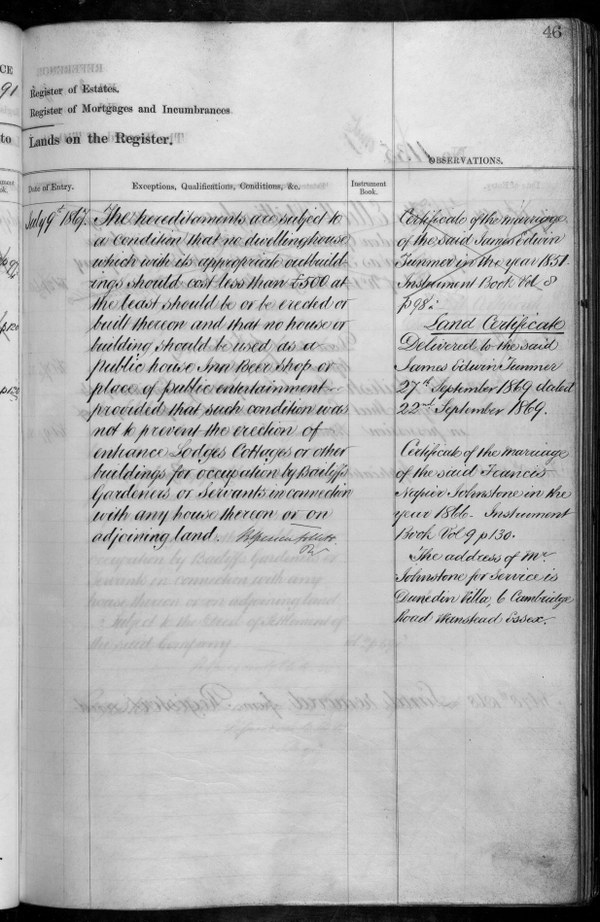 46
Register of Estates.
Register of Mortgages and Incumbrances
Lands on the Register.
OBSERVATIONS.
Date of Entry.
Exceptions, Qualifications, Conditions, &c.
Instrument
Book.
July 9th 1867.
The hereditaments are subject to
a condition that no dwellinghouse
which with its appropriate outbuild
ings should cost less than £500 at
the least should be or be erected or
built thereon and that no house or
building should be used as a
public house Inn Beer Shop or
place of public entertainment
provided that such condition was
not to prevent the erection of
entrance Lodges Cottages or other
buildings for occupation by Bailiffs
Gardeners or Servants in connection
with any house thereon or on
adjoining land.
Certificate of the marriage
of the said James Edwin
in the year 1851
Instrument Book Vol 8
p 98.
Land Certificate
Delivered to the said
James Edwin
27th September 1869 dated
22nd September 1869.
Certificate of the marriage
of the said Francis
Napier Johnstone in the
year 1866. Instrument
Book Vol 9 p 130.
The address of Mr.
Johnstone for service is
Dunedin Villa, 6 Cambridge
Road Wanstead Essex.